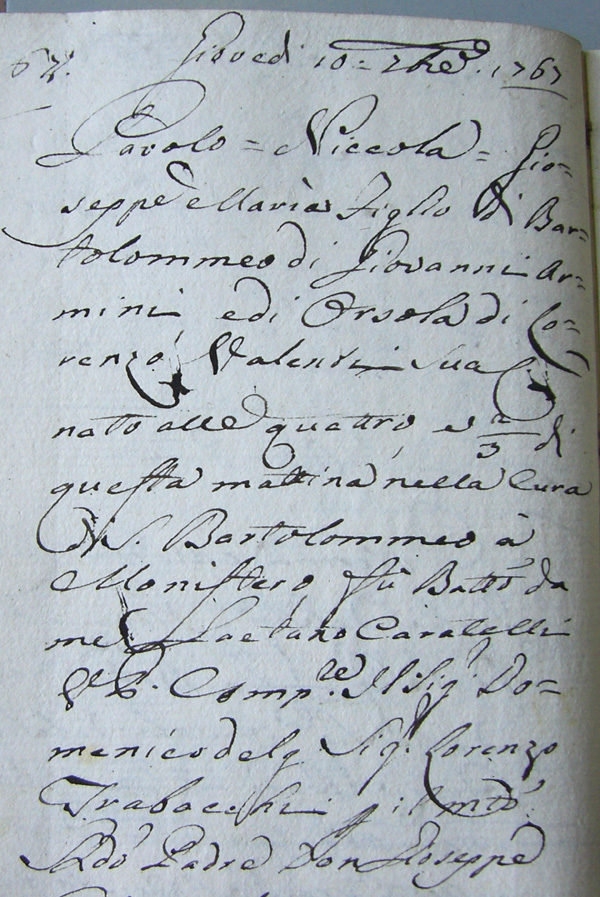 Giovedi 10 = 7bre 1767
Pavolo = Niccola = Gio=
seppe e Maria Figlio di Bar=
tolommeo di Giovanni Ar=
mini e di Orsola di Lo=
renzo Valenti Sua C.
nato alle quattro e 2/3 di
questa mattina nella Cura
di S. Bartolommeo à
Monistero fù Batto da
me Gaetano Caratelli
V P. Compre. Il Sigr Do=
menico del q Sigr Lorenzo
Trabocchi p il mto
Rdo Padre Don Gioseppe